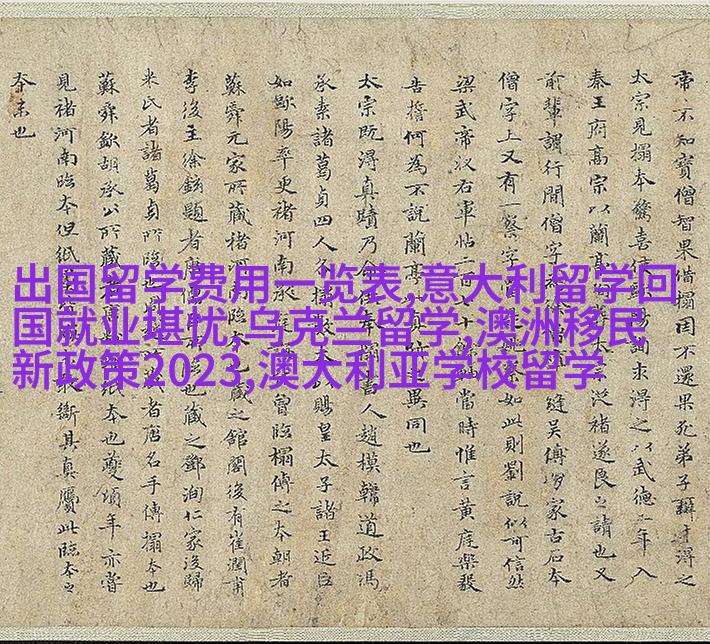 出国留学费用一览表,意大利留学回
国就业堪忧,乌克兰留学,澳洲移民
新政策2023,澳大利亚学校留学
帝不知寶僧智果借搨因不還果死弟子辯才得之
太宗見搨本驚喜使求得之以武德二年入
秦王府高宗以蘭亭褚遂良之請也又
前輩謂行間僧字縫吳傅朋家古石本
僧字上又有一察字察如此則劉説似可信然
梁武帝收右軍帖二百七十餘當時惟言黃庭樂毅
告誓何為不說蘭亭異同也
太宗既得真蹟乃命供奉搨書人趙模韓道政馮
承素諸葛貞四人各搨數本以賜皇太子諸王近臣
如歐陽率更褚河南曾臨搨傅之本朝者
蘇舜元家所藏褚河南臨本藏之館閣後有崔潤甫
李後主徐鉉題者唐也藏之鄧洵仁家後歸
米氏者諸葛貞所臨也者唐名手傅搨本也
蘇舜欽胡承公所藏者紙本也夔頃年亦嘗
見褚河南臨本但紙斷其真贗此臨本之
夲末也